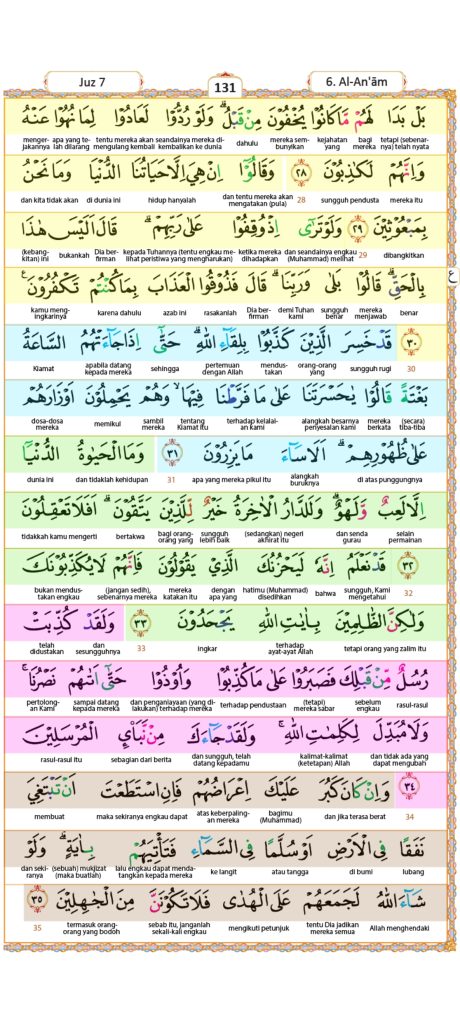 Juz 7
131
6. Al-An'ām
بَلْ بَدَا لَهُمْ مَّا كَانُوْا يُخْفُوْنَ مِنْ قَبْلُ ۗ وَلَوْ رُدُّوْا لَعَادُوْا لِمَا نُهُوْا عَنْهُ
tetapi (sebenarnya) telah nyata bagi mereka kejahatan yang mereka sembunyikan dahulu seandainya mereka dikembalikan ke dunia tentu mereka akan mengulang kembali apa yang telah dilarang mengerjakannya
وَاِنَّهُمْ لَكٰذِبُوْنَ ٢٨ وَقَالُوْٓا اِنْ هِيَ اِلَّا حَيَاتُنَا الدُّنْيَا وَمَا نَحْنُ
mereka itu sungguh pendusta 28 dan tentu mereka akan mengatakan (pula) hidup hanyalah di dunia ini dan kita tidak akan
بِمَبْعُوْثِيْنَ ٢٩ وَلَوْ تَرٰٓى اِذْ وُقِفُوْا عَلٰى رَبِّهِمْ ۗ قَالَ اَلَيْسَ هٰذَا
dibangkitkan 29 dan seandainya engkau (Muhammad) melihat ketika mereka dihadapkan kepada Tuhannya (tentu engkau melihat peristiwa yang mengharukan) Dia berfirman bukankah (kebangkitan) ini
بِالْحَقِّ ۗ قَالُوْا بَلٰى وَرَبِّنَا ۗ قَالَ فَذُوْقُوا الْعَذَابَ بِمَا كُنْتُمْ تَكْفُرُوْنَ ࣖ
ع
benar mereka menjawab sungguh benar demi Tuhan kami Dia berfirman rasakanlah azab ini karena dahulu kamu mengingkarinya
٣٠ قَدْ خَسِرَ الَّذِيْنَ كَذَّبُوْا بِلِقَاۤءِ اللّٰهِ ۗ حَتّٰٓى اِذَا جَاۤءَتْهُمُ السَّاعَةُ
30 sungguh rugi orang-orang yang mendustakan pertemuan dengan Allah sehingga apabila datang kepada mereka Kiamat
بَغْتَةً قَالُوْا يٰحَسْرَتَنَا عَلٰى مَا فَرَّطْنَا فِيْهَا ۙ وَهُمْ يَحْمِلُوْنَ اَوْزَارَهُمْ
(secara) tiba-tiba mereka berkata alangkah besarnya penyesalan kami terhadap kelalaian kami tentang Kiamat itu sambil mereka memikul dosa-dosa mereka
عَلٰى ظُهُوْرِهِمْ ۗ اَلَا سَاۤءَ مَا يَزِرُوْنَ ٣١ وَمَا الْحَيٰوةُ الدُّنْيَآ
di atas punggungnya alangkah buruknya apa yang mereka pikul itu 31 dan tidaklah kehidupan dunia ini
اِلَّا لَعِبٌ وَّلَهْوٌ ۗ وَلَلدَّارُ الْاٰخِرَةُ خَيْرٌ لِّلَّذِيْنَ يَتَّقُوْنَ ۗ اَفَلَا تَعْقِلُوْنَ
selain permainan dan senda gurau (sedangkan) negeri akhirat itu sungguh lebih baik bagi orang-orang yang bertakwa tidakkah kamu mengerti
٣٢ قَدْ نَعْلَمُ اِنَّهٗ لَيَحْزُنُكَ الَّذِيْ يَقُوْلُوْنَ فَاِنَّهُمْ لَا يُكَذِّبُوْنَكَ
32 sungguh, Kami mengetahui bahwa hatimu (Muhammad) disedihkan dengan apa yang mereka katakan itu (jangan sedih), sebenarnya mereka bukan mendustakan engkau
وَلٰكِنَّ الظّٰلِمِيْنَ بِاٰيٰتِ اللّٰهِ يَجْحَدُوْنَ ٣٣ وَلَقَدْ كُذِّبَتْ
tetapi orang yang zalim itu terhadap ayat-ayat Allah ingkar 33 dan sesungguhnya telah didustakan
رُسُلٌ مِّنْ قَبْلِكَ فَصَبَرُوْا عَلٰى مَا كُذِّبُوْا وَاُوْذُوْا حَتّٰٓى اَتٰىهُمْ نَصْرُنَا ۚ
rasul-rasul sebelum engkau (tetapi) mereka sabar terhadap pendustaan dan penganiayaan (yang dilakukan) terhadap mereka sampai datang kepada mereka pertolongan Kami
وَلَا مُبَدِّلَ لِكَلِمٰتِ اللّٰهِ ۚ وَلَقَدْ جَاۤءَكَ مِنْ نَّبَإِ۟ى الْمُرْسَلِيْنَ
dan tidak ada yang dapat mengubah kalimat-kalimat (ketetapan) Allah dan sungguh, telah datang kepadamu sebagian dari berita rasul-rasul itu
٣٤ وَاِنْ كَانَ كَبُرَ عَلَيْكَ اِعْرَاضُهُمْ فَاِنِ اسْتَطَعْتَ اَنْ تَبْتَغِيَ
34 dan jika terasa berat bagimu (Muhammad) atas keberpalingan mereka maka sekiranya engkau dapat membuat
نَفَقًا فِى الْاَرْضِ اَوْ سُلَّمًا فِى السَّمَاۤءِ فَتَأْتِيَهُمْ بِاٰيَةٍ ۗ وَلَوْ
lubang di bumi atau tangga ke langit lalu engkau dapat mendatangkan kepada mereka (sebuah) mukjizat (maka buatlah) dan sekiranya
شَاۤءَ اللّٰهُ لَجَمَعَهُمْ عَلَى الْهُدٰى فَلَا تَكُوْنَنَّ مِنَ الْجٰهِلِيْنَ ٣٥
Allah menghendaki tentu Dia jadikan mereka semua mengikuti petunjuk sebab itu, janganlah sekali-kali engkau termasuk orang-orang bodoh 35